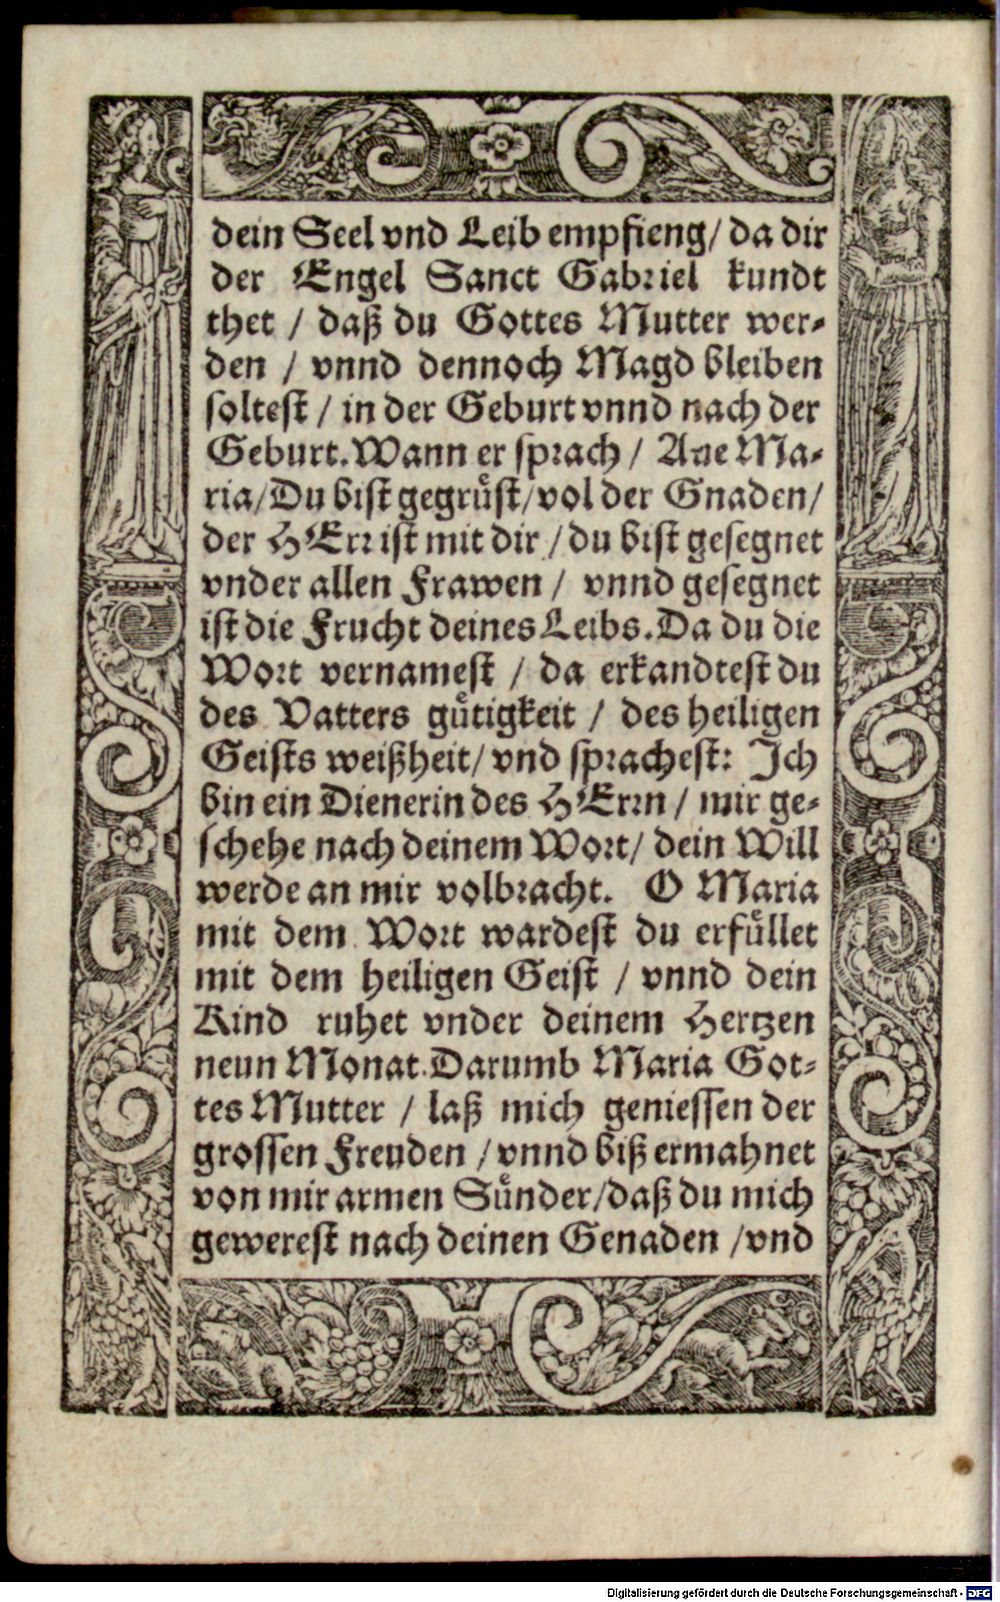 dein Seel vnd Leib empfieng/ da dir
der Engel Sanct Gabriel kundt
thet / daß du Gottes Mutter wer-
den / vnnd dennoch Magd bleiben
soltest / in der Geburt vnnd nach der
Geburt. Wann er sprach / Aue Ma-
ria/ Du bist gegrüst/ vol der Gnaden/
der HErr ist mit dir / du bist gesegnet
vnder allen Frawen / vnnd gesegnet
ist die Frucht deines Leibs. Da du die
Wort vernamest / da erkandtest du
des Vatters gütigkeit / des heiligen
Geists weißheit/ vnd sprachest: Ich
bin ein Dienerin des HErrn / mir ge-
schehe nach deinem Wort/ dein Will
werde an mir volbracht. O Maria
mit dem Wort wardest du erfüllet
mit dem heiligen Geist / vnnd dein
Kind ruhet vnder deinem Hertzen
neun Monat. Darumb Maria Got-
tes Mutter / laß mich geniessen der
grossen Freuden / vnnd biß ermahnet
von mir armen Sünder/ daß du mich
gewerest nach deinen Genaden / vnd
Digitalisierung gefördert durch die Deutsche Forschungsgemeinschaft - DFG